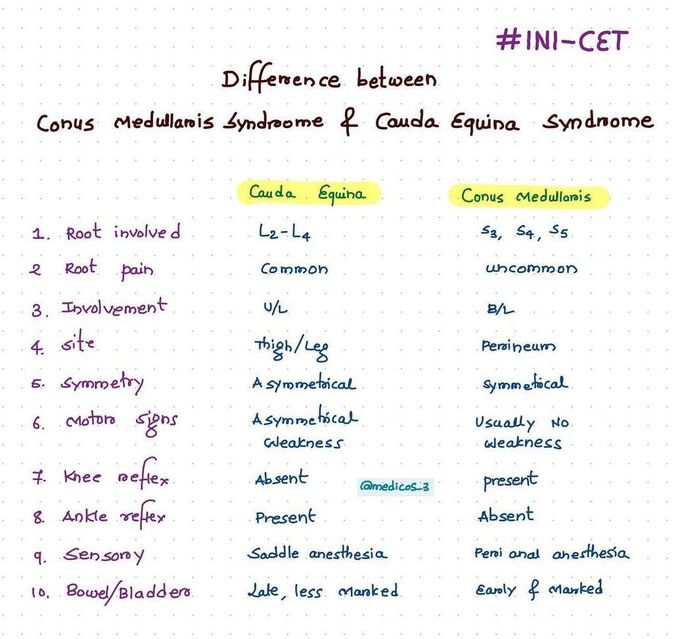 #INI-CET
Difference between
Conus Medullaris Syndrome & Cauda Equina Syndrome
Cauda Equina Conus Medullaris
1. Root involved L2-L4 S3, S4, S5
2 Root pain Common uncommon
3. Involvement U/L B/L
4. Site Thigh/Leg Perineum
5. Symmetry Asymmetrical Symmetical
6. Motor signs Asymmetrical Usually No
weakness weakness
7. Knee reflex Absent present
@medicos_3
8. Ankle reflex Present Absent
9. Sensory Saddle anesthesia Peri anal anesthesia
10. Bowel/Bladder Late, less Marked Early & Marked